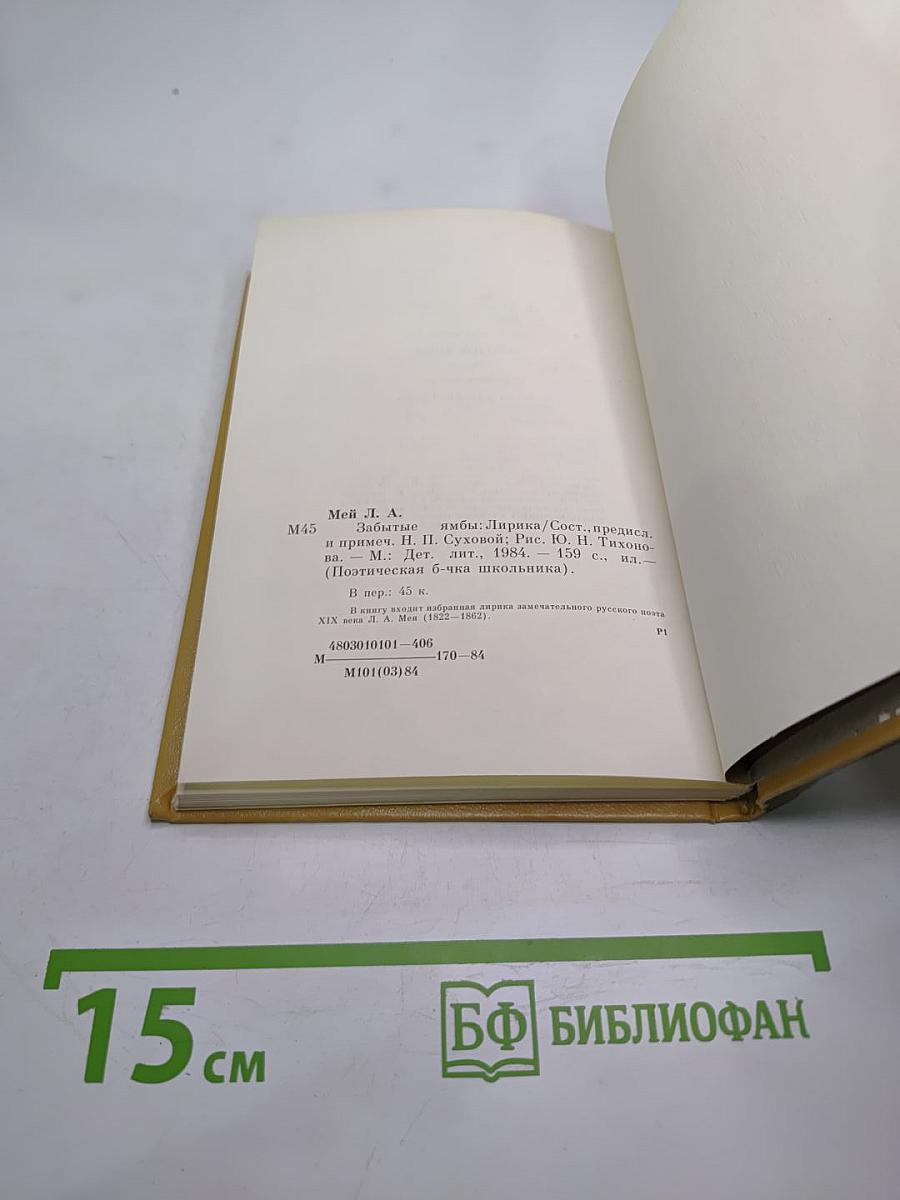 Мей Л. А.
М45 Забытые ямбы: Лирика/Сост., предисл.
и примеч. Н. П. Суховой; Рис. Ю. Н. Тихоно-
ва. — М.: Дет. лит., 1984. — 159 с., ил.—
(Поэтическая б-чка школьника).
В пер.: 45 к.
В книгу входит избранная лирика замечательного русского поэта
XIX века Л. А. Мея (1822—1862).
Р1
4803010101—406
М———170—84
М101(03)84
15 см
БФ БИБЛИОФАН